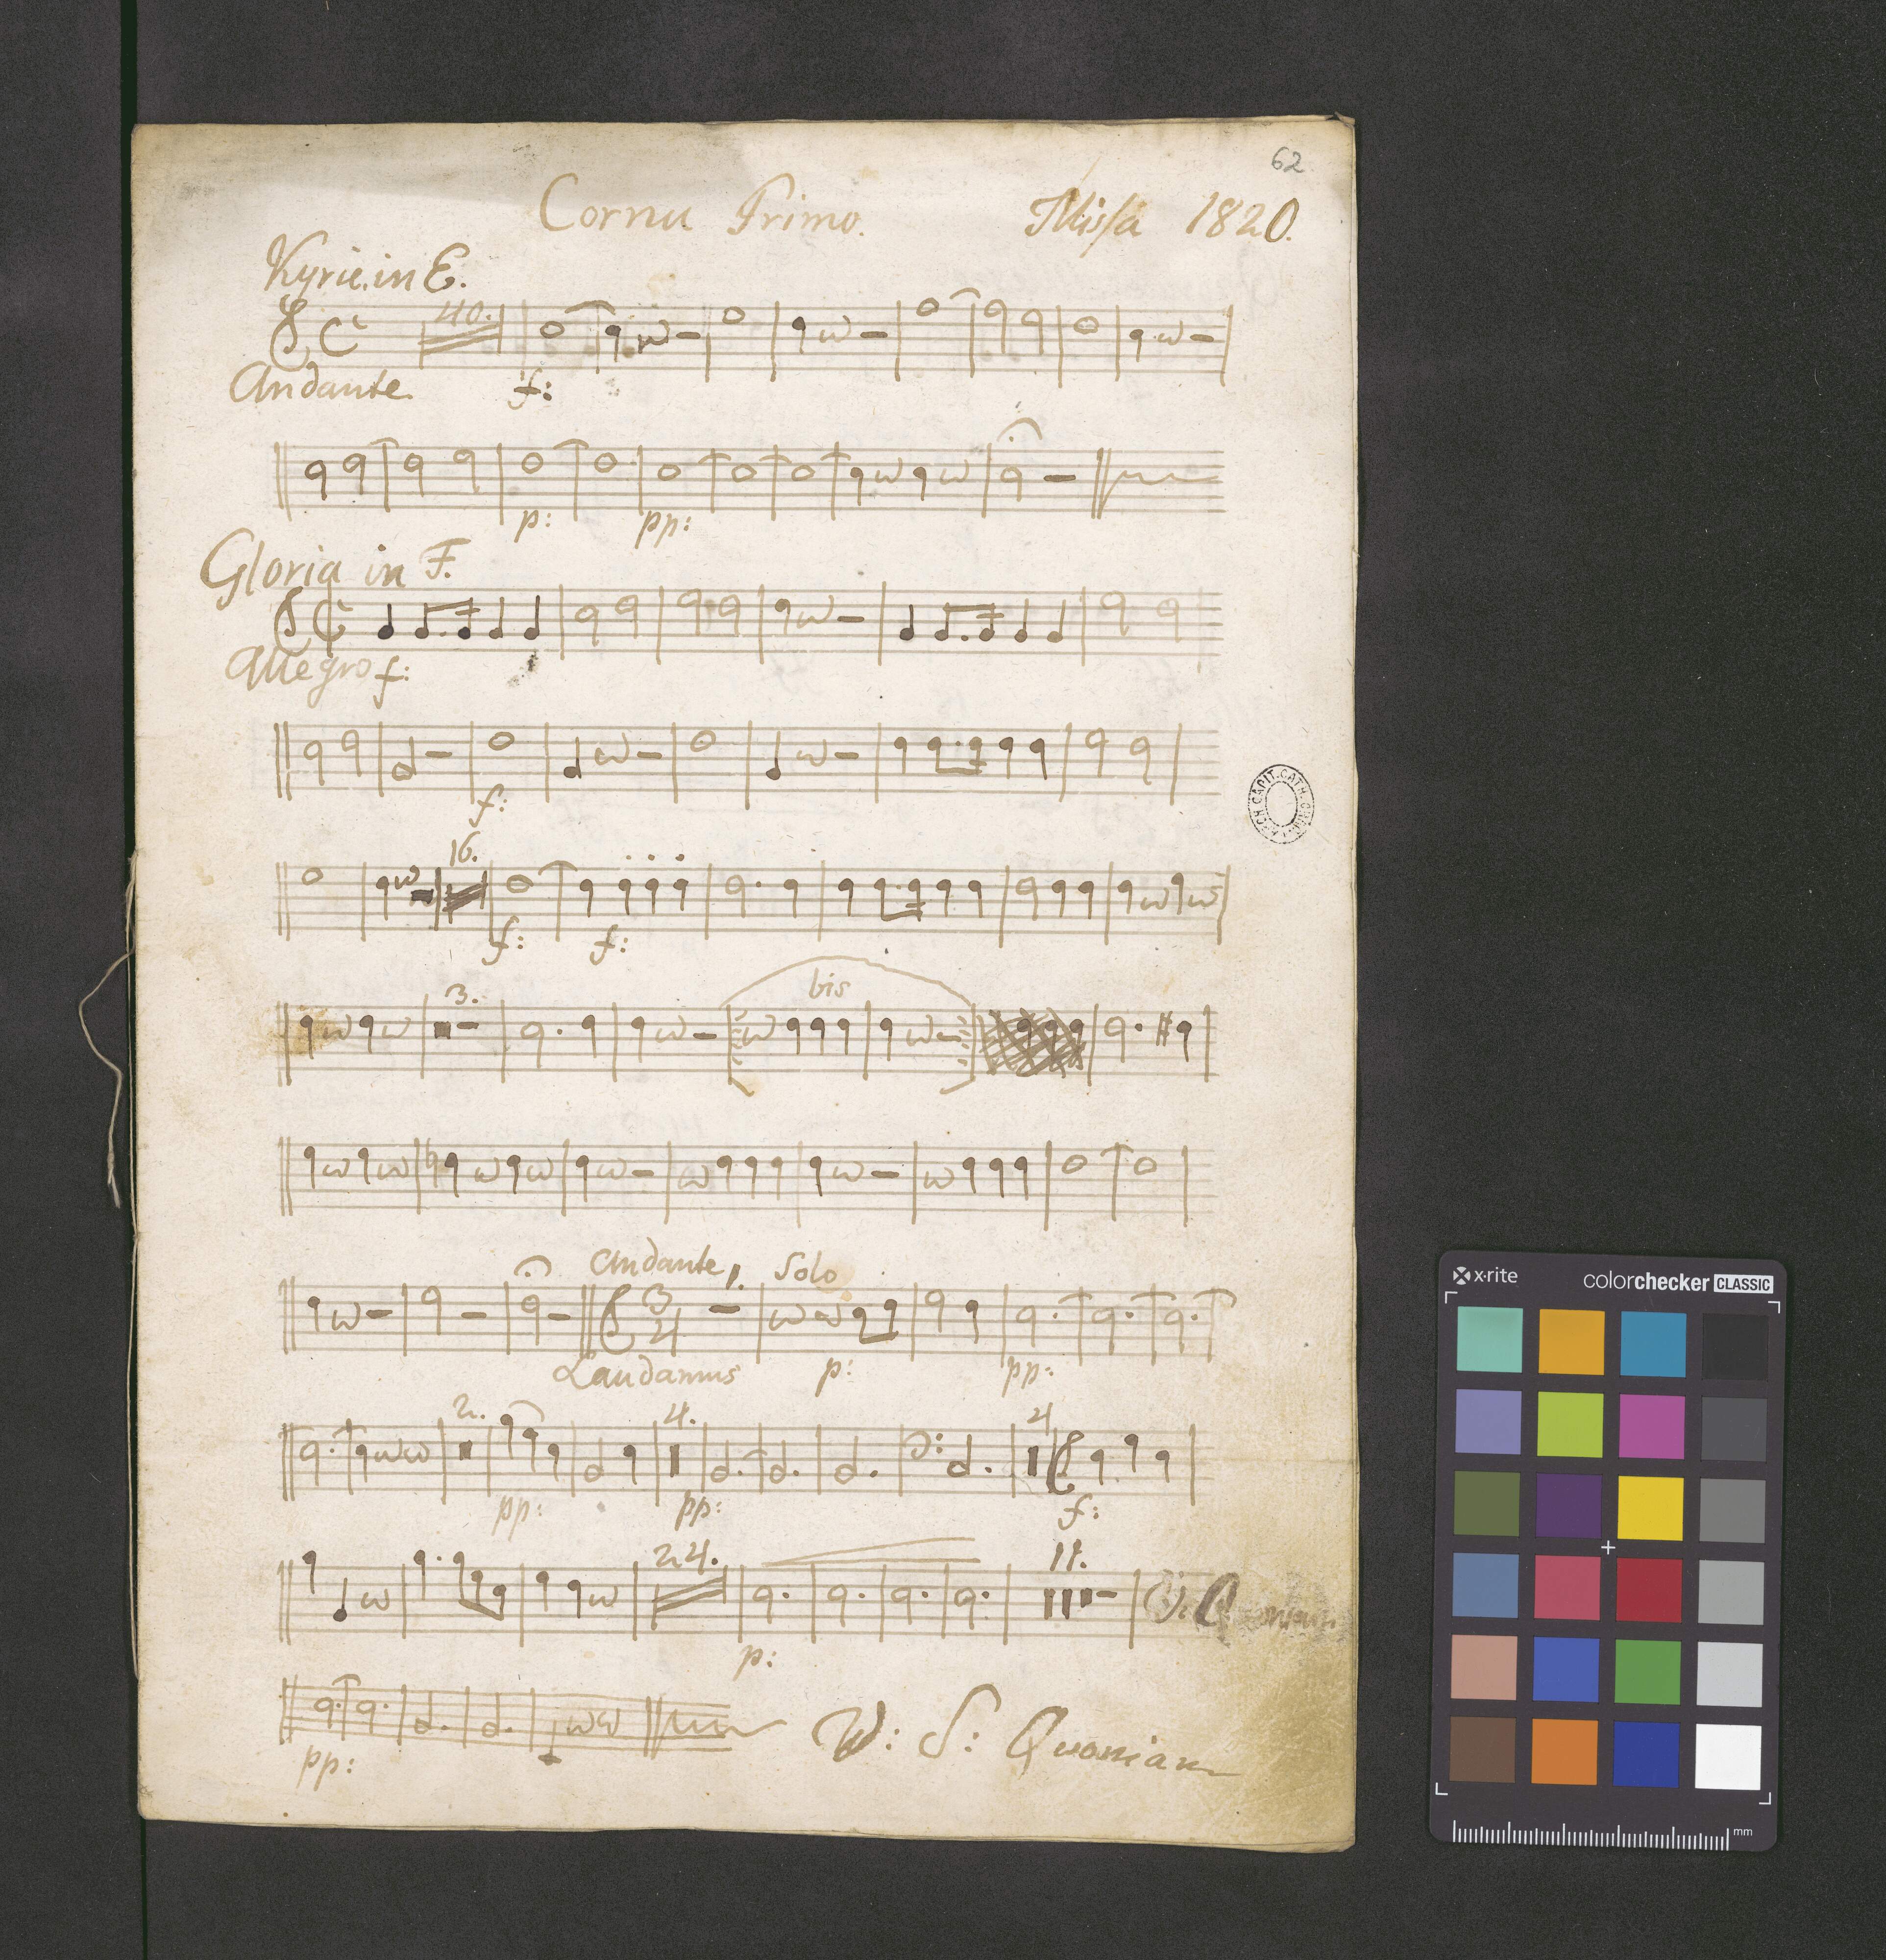 62
Cornu Primo. Missa 1820.
Kyrie. in E.
40.
Andante f:
p: pp:
Gloria in F.
Allegro f:
f:
16.
f: f:
3. bis
Andante 1. Solo
3
4
Laudamus p: pp:
2. 4. 4
pp: pp: f:
24. 11.
p:
pp:
V: S: Quoniam
x·rite colorchecker CLASSIC
mm